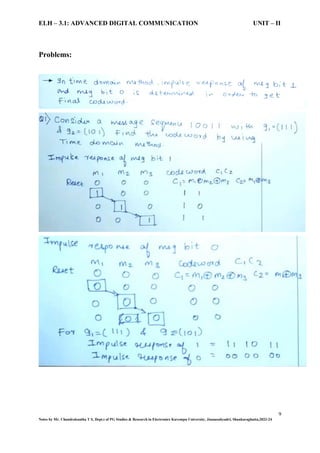 ELH – 3.1: ADVANCED DIGITAL COMMUNICATION UNIT – II
Problems:
→ In time domain method, impulse response of msg bit 1
and msg bit 0 is determined in order to get
final codeword.
Q1) Consider a message sequence 10011 with g₁=(111)
& g₂=(101) Find the codeword by using
Time domain method.
Impulse response of msg bit 1
m₁ m₂ m₃ codeword C₁C₂
Reset 0 0 0 C₁=m₁⊕m₂⊕m₃ C₂=m₁⊕m₃
1 0 0 1 1
0 1 0 1 0
0 0 1 1 1
Impulse response of msg bit 0
m₁ m₂ m₃ Codeword C₁C₂
Reset 0 0 0 C₁=m₁⊕m₂⊕m₃ C₂= m₁⊕m₃
0 0 0 0 0
0 0 0 0 0
0 0 0 0
For g₁=(111) & g₂=(101)
Impulse response of 1 = 11 10 11
Impulse response of 0 = 00 00 00
9
Notes by Mr. Chandrashantha T S, Dept.s of PG Studies & Research in Electronics Kuvempu University, Jnanasahyadri, Shankaraghatta,2023-24